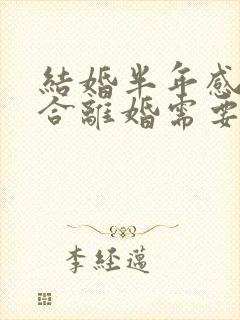 結婚半年感
合離婚需要
李經邁